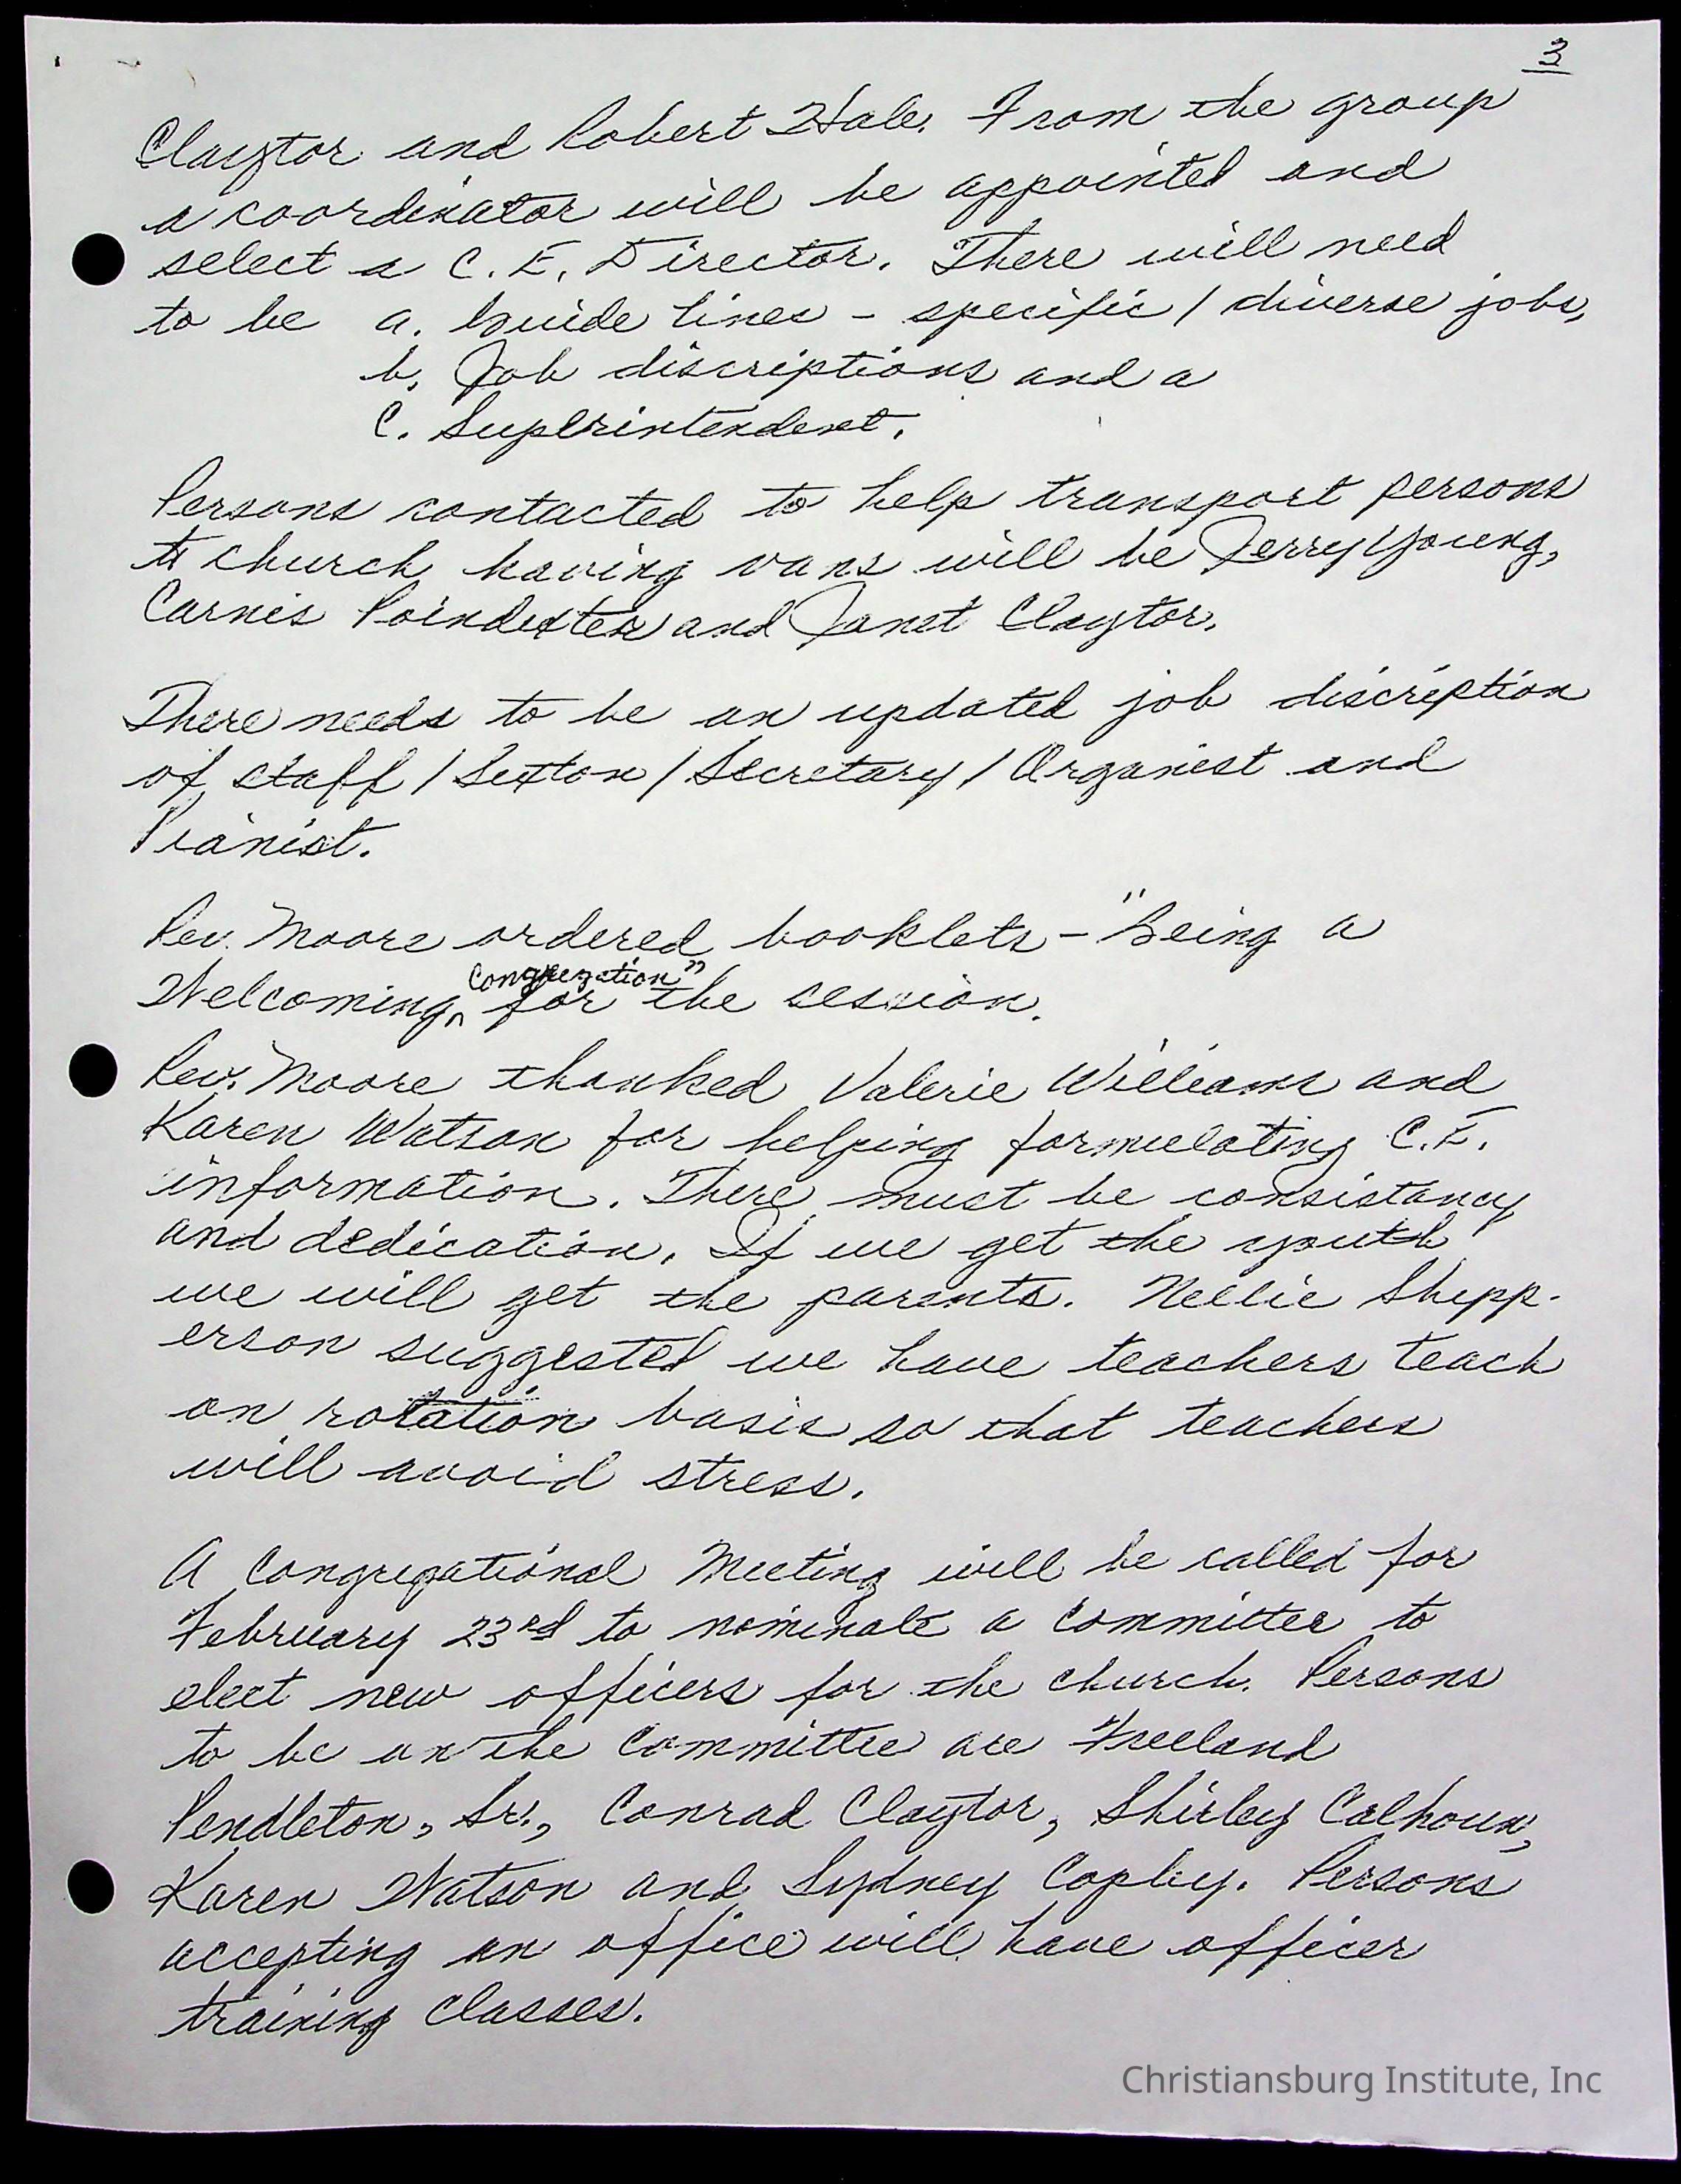 3
Claytor and Robert Hale. From the group
a coordinator will be appointed and
select a C. E. Director. There will need
to be a. Guide lines - specific / diverse jobs,
b. Job discriptions and a
C. Superintendent.
Persons contacted to help transport persons
to church having vans will be Jerry Young,
Carnis Poindexter and Janet Claytor.
There needs to be an updated job discription
of staff / Sexton / Secretary / Organist and
Pianist.
Rev. Moore ordered booklets - "Being a
Congregation"
Welcoming ^ for the session.
Rev. Moore thanked Valerie Williams and
Karen Watson for helping formulating C.E.
information. There must be consistancy
and dedication. If we get the youth
we will get the parents. Nellie Shepp-
erson suggested we have teachers teach
on rotation basis so that teachers
will avoid stress.
A Congregational Meeting will be called for
February 23rd to nominate a committee to
elect new officers for the church. Persons
to be on the Committee are Freeland
Pendleton, Sr., Conrad Claytor, Shirley Calhoun,
Karen Watson and Sydney Copley. Persons
accepting an office will have officer
training classes.
Christiansburg Institute, Inc